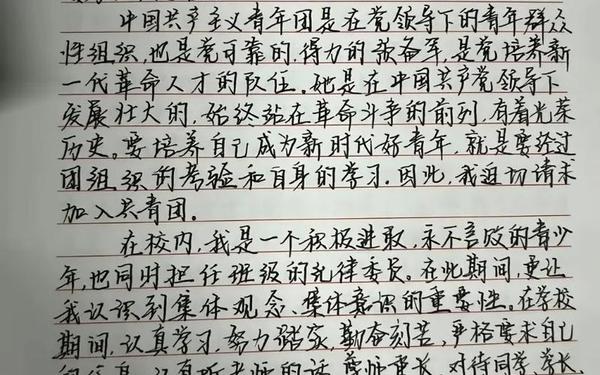 中国共产主义青年团是在党领导下的青年群众
性组织,也是党可靠的、得力的后备军,是党培养新
一代革命人才的队伍。她是在中国共产党领导下
发展壮大的,始终站在革命斗争的前列,有着光荣
历史。要培养自己成为新时代好青年,就是要经过
团组织的考验和自身的学习。因此,我迫切请求
加入共青团。
在校内,我是一个积极进取,永不言败的青少
年,也同时担任班级的纪律委员。在此期间,更让
我认识到集体观念、集体意识的重要性。在学校
期间,认真学习,努力踏实,勤奋刻苦,严格要求自己
认真听老师的话,尊师重长,对待同学、学长、